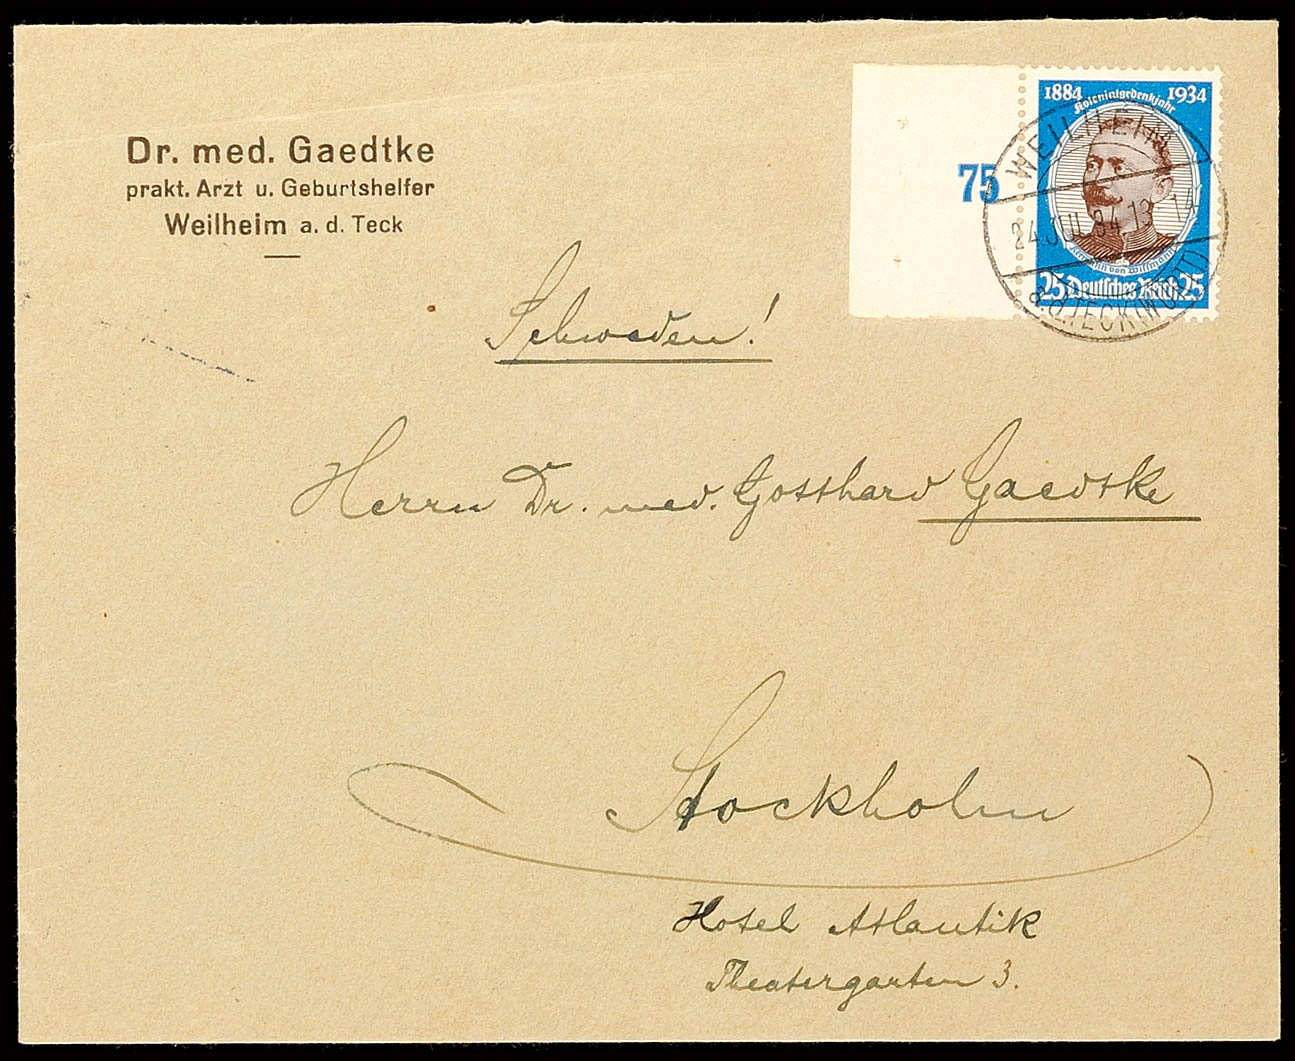 Dr. med. Gaedtke
prakt. Arzt u. Geburtshelfer
Weilheim a. d. Teck
1884 1934
Kolonialgedenkjahr
75
Hermann von Wissmann
25 Deutsches Reich 25
WEILHEIM
24.JUL.34.13-14
a.d.TECK(WÜRTT)
Schweden!
Herrn Dr. med. Gotthard Gaedtke
Stockholm
Hotel Atlantik
Theatergarten 3.